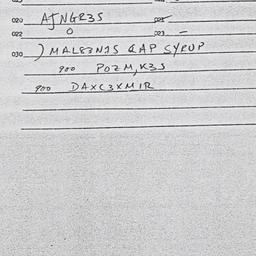 020 AJNGR3S 021
022 0 023 —
030 ) MAL83N1S &AP SYRUP
900 POZM,K3J
900 DAXC3XMIR